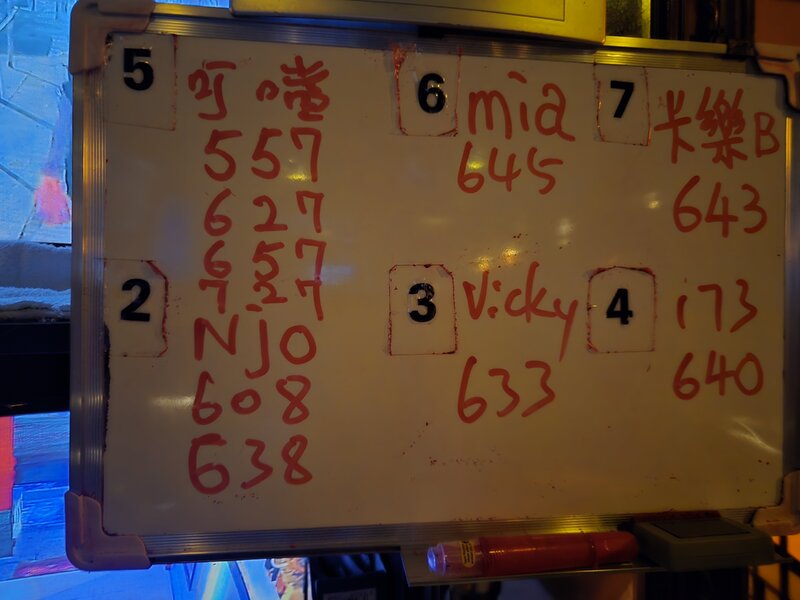 5
叮噹
557
627
657
727
6
mia
645
7
卡樂B
643
2
Njo
608
638
3
Vicky
633
4
i73
640